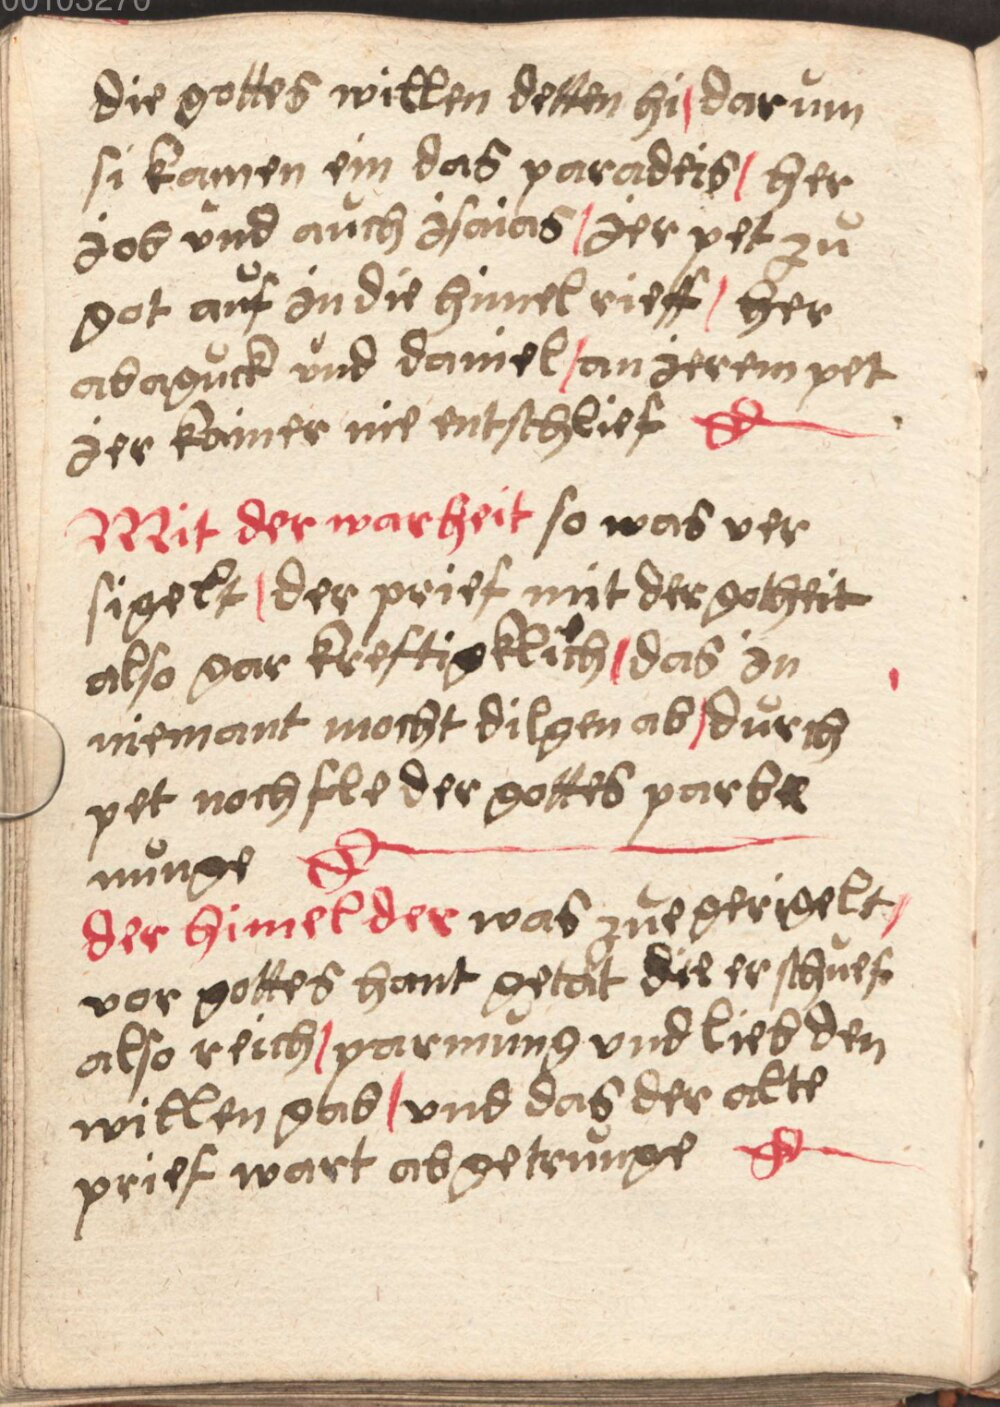 00103270
die gottes willen detten hi / darům
si kamen ein das paradeis / her
job vnd aůch jsaias / jer pet zů
got aůf jn die himel rieff / her
abagůck vnd daniel / an jerem pet
jer kainer nie entschlief
Mit der warheit so was ver
sigelt / der prief mit der gotheit
also gar kreftigklich / das jn
niemant mocht dilgen ab / důrch
pet noch fle der gottes parbe
nůnge
der himel der was zůe gerigelt /
vor gottes hant getat die er schůef
also reich / parmůng vnd lieb den
willen gab / vnd das der alte
prief wart abgetrůnge